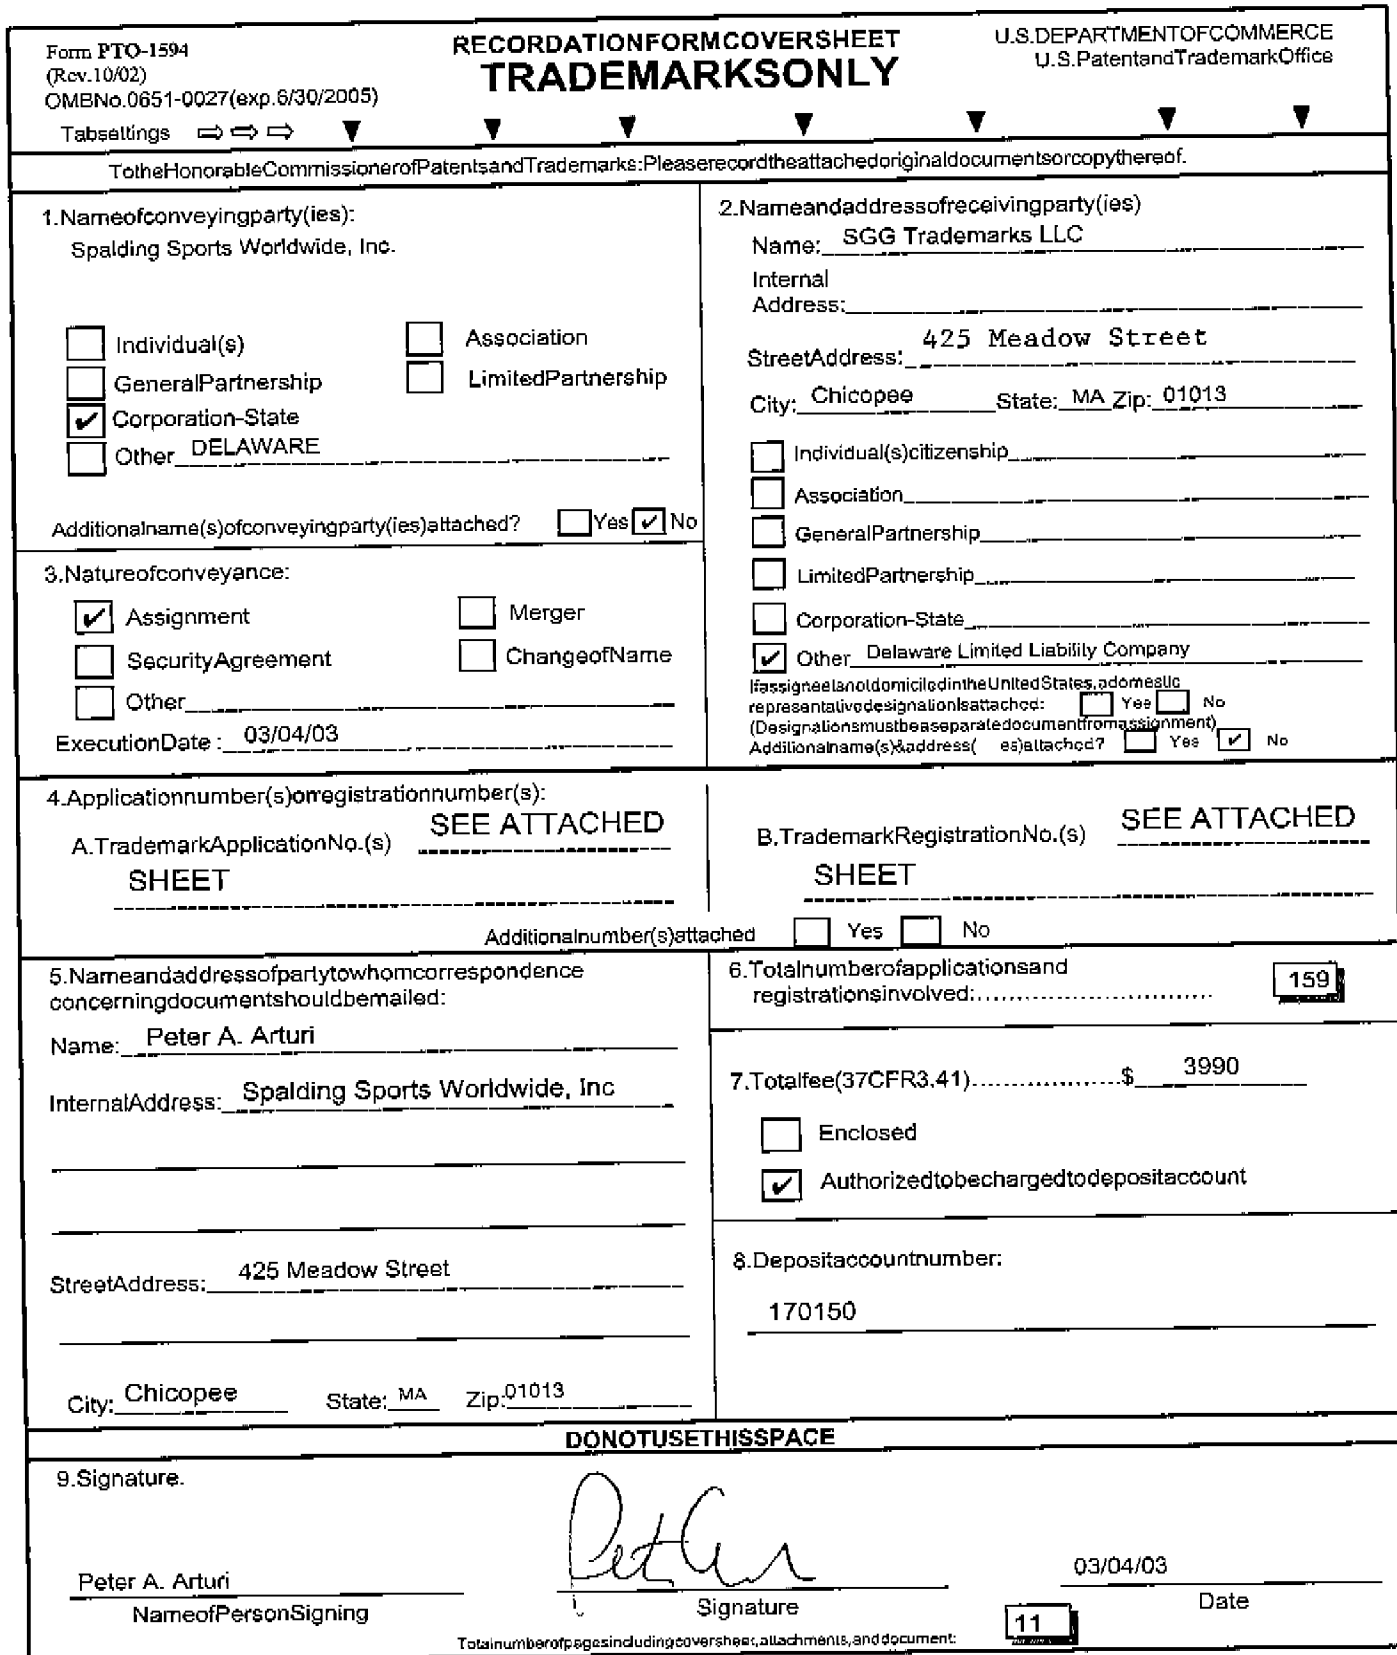 Form PTO-1594
(Rev.10/02)
OMBNo.0651-0027(exp.6/30/2005)
Tabsettings
RECORDATIONFORMCOVERSHEET
TRADEMARKSONLY
U.S.DEPARTMENTOFCOMMERCE
U.S.PatentandTrademarkOffice
TotheHonorableCommissionerofPatentsandTrademarks:Pleaserecordtheattachedoriginaldocumentsorcopythereof.
1.Nameofconveyingparty(ies):
Spalding Sports Worldwide, Inc.
Individual(s) Association
GeneralPartnership LimitedPartnership
✔ Corporation-State
Other DELAWARE
Additionalname(s)ofconveyingparty(ies)attached? Yes ✔ No
2.Nameandaddressofreceivingparty(ies)
Name: SGG Trademarks LLC
Internal
Address:
StreetAddress: 425 Meadow Street
City: Chicopee State: MA Zip: 01013
Individual(s)citizenship
Association
GeneralPartnership
LimitedPartnership
Corporation-State
✔ Other Delaware Limited Liability Company
IfassigneeisnotdomiciledintheUnitedStates,adomestic
representativedesignationisattached: Yes No
(Designationsmustbeaseparatedocumentfromassignment)
Additionalname(s)&address( es)attached? Yes ✔ No
3.Natureofconveyance:
✔ Assignment Merger
SecurityAgreement ChangeofName
Other
ExecutionDate: 03/04/03
4.Applicationnumber(s)orregistrationnumber(s):
A.TrademarkApplicationNo.(s) SEE ATTACHED
SHEET
B.TrademarkRegistrationNo.(s) SEE ATTACHED
SHEET
Additionalnumber(s)attached Yes No
5.Nameandaddressofpartytowhomcorrespondence
concerningdocumentshouldbemailed:
Name: Peter A. Arturi
InternalAddress: Spalding Sports Worldwide, Inc
StreetAddress: 425 Meadow Street
City: Chicopee State: MA Zip:01013
6.Totalnumberofapplicationsand
registrationsinvolved:............................ 159
7.Totalfee(37CFR3.41)....................$ 3990
Enclosed
✔ Authorizedtobechargedtodepositaccount
8.Depositaccountnumber:
170150
DONOTUSETHISSPACE
9.Signature.
Peter A. Arturi 03/04/03
NameofPersonSigning Signature Date
Totalnumberofpagesincludingcoversheet,attachments,anddocument: 11